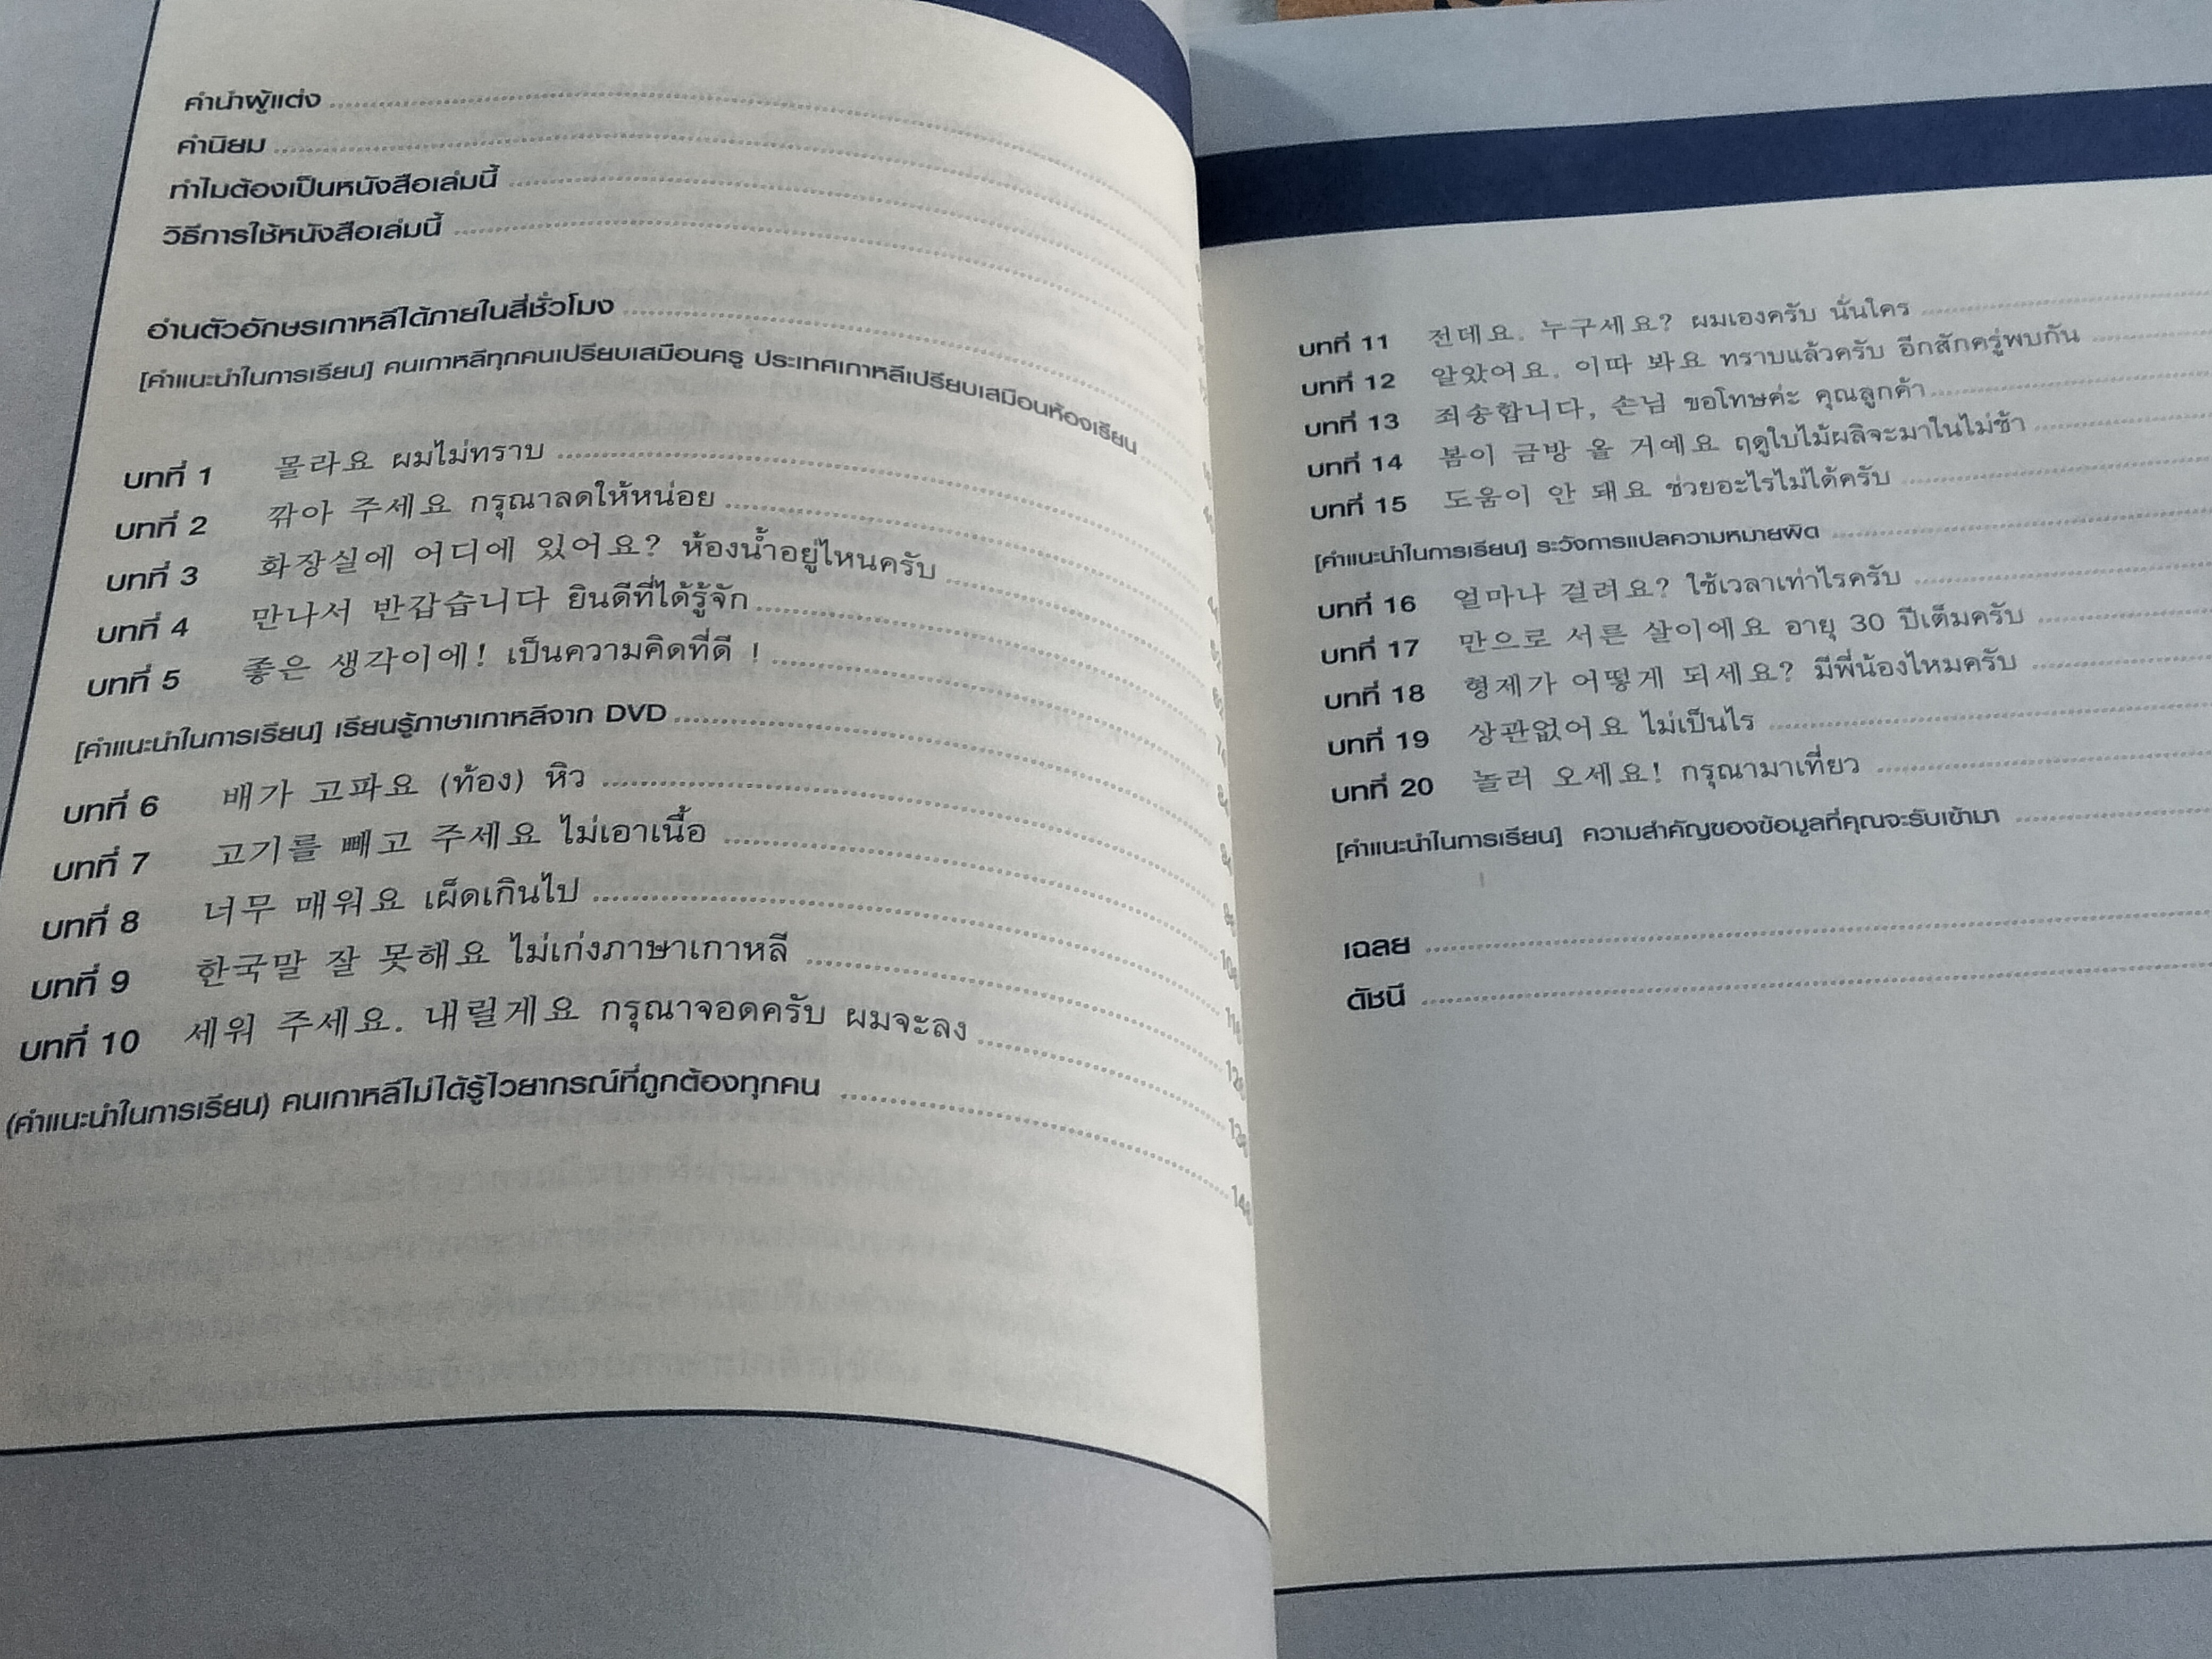 คำนำผู้แต่ง
คำนิยม
ทำไมต้องเป็นหนังสือเล่มนี้
วิธีการใช้หนังสือเล่มนี้
อ่านตัวอักษรเกาหลีได้ภายในสี่ชั่วโมง
[คำแนะนำในการเรียน] คนเกาหลีทุกคนเปรียบเสมือนครู ประเทศเกาหลีเปรียบเสมือนห้องเรียน
บทที่ 1 몰라요 ผมไม่ทราบ
บทที่ 2 깎아 주세요 กรุณาลดให้หน่อย
บทที่ 3 화장실에 어디에 있어요? ห้องน้ำอยู่ไหนครับ
บทที่ 4 만나서 반갑습니다 ยินดีที่ได้รู้จัก
บทที่ 5 좋은 생각이에! เป็นความคิดที่ดี !
[คำแนะนำในการเรียน] เรียนรู้ภาษาเกาหลีจาก DVD
บทที่ 6 배가 고파요 (ท้อง) หิว
บทที่ 7 고기를 빼고 주세요 ไม่เอาเนื้อ
บทที่ 8 너무 매워요 เผ็ดเกินไป
บทที่ 9 한국말 잘 못해요 ไม่เก่งภาษาเกาหลี
บทที่ 10 세워 주세요. 내릴게요 กรุณาจอดครับ ผมจะลง
(คำแนะนำในการเรียน) คนเกาหลีไม่ได้รู้ไวยากรณ์ที่ถูกต้องทุกคน
บทที่ 11 전데요. 누구세요? ผมเองครับ นั่นใคร
บทที่ 12 알았어요. 이따 봐요 ทราบแล้วครับ อีกสักครู่พบกัน
บทที่ 13 죄송합니다, 손님 ขอโทษค่ะ คุณลูกค้า
บทที่ 14 봄이 금방 올 거예요 ฤดูใบไม้ผลิจะมาในไม่ช้า
บทที่ 15 도움이 안 돼요 ช่วยอะไรไม่ได้ครับ
[คำแนะนำในการเรียน] ระวังการแปลความหมายผิด
บทที่ 16 얼마나 걸려요? ใช้เวลาเท่าไรครับ
บทที่ 17 만으로 서른 살이에요 อายุ 30 ปีเต็มครับ
บทที่ 18 형제가 어떻게 되세요? มีพี่น้องไหมครับ
บทที่ 19 상관없어요 ไม่เป็นไร
บทที่ 20 놀러 오세요! กรุณามาเที่ยว
[คำแนะนำในการเรียน] ความสำคัญของข้อมูลที่คุณจะรับเข้ามา
เฉลย
ดัชนี